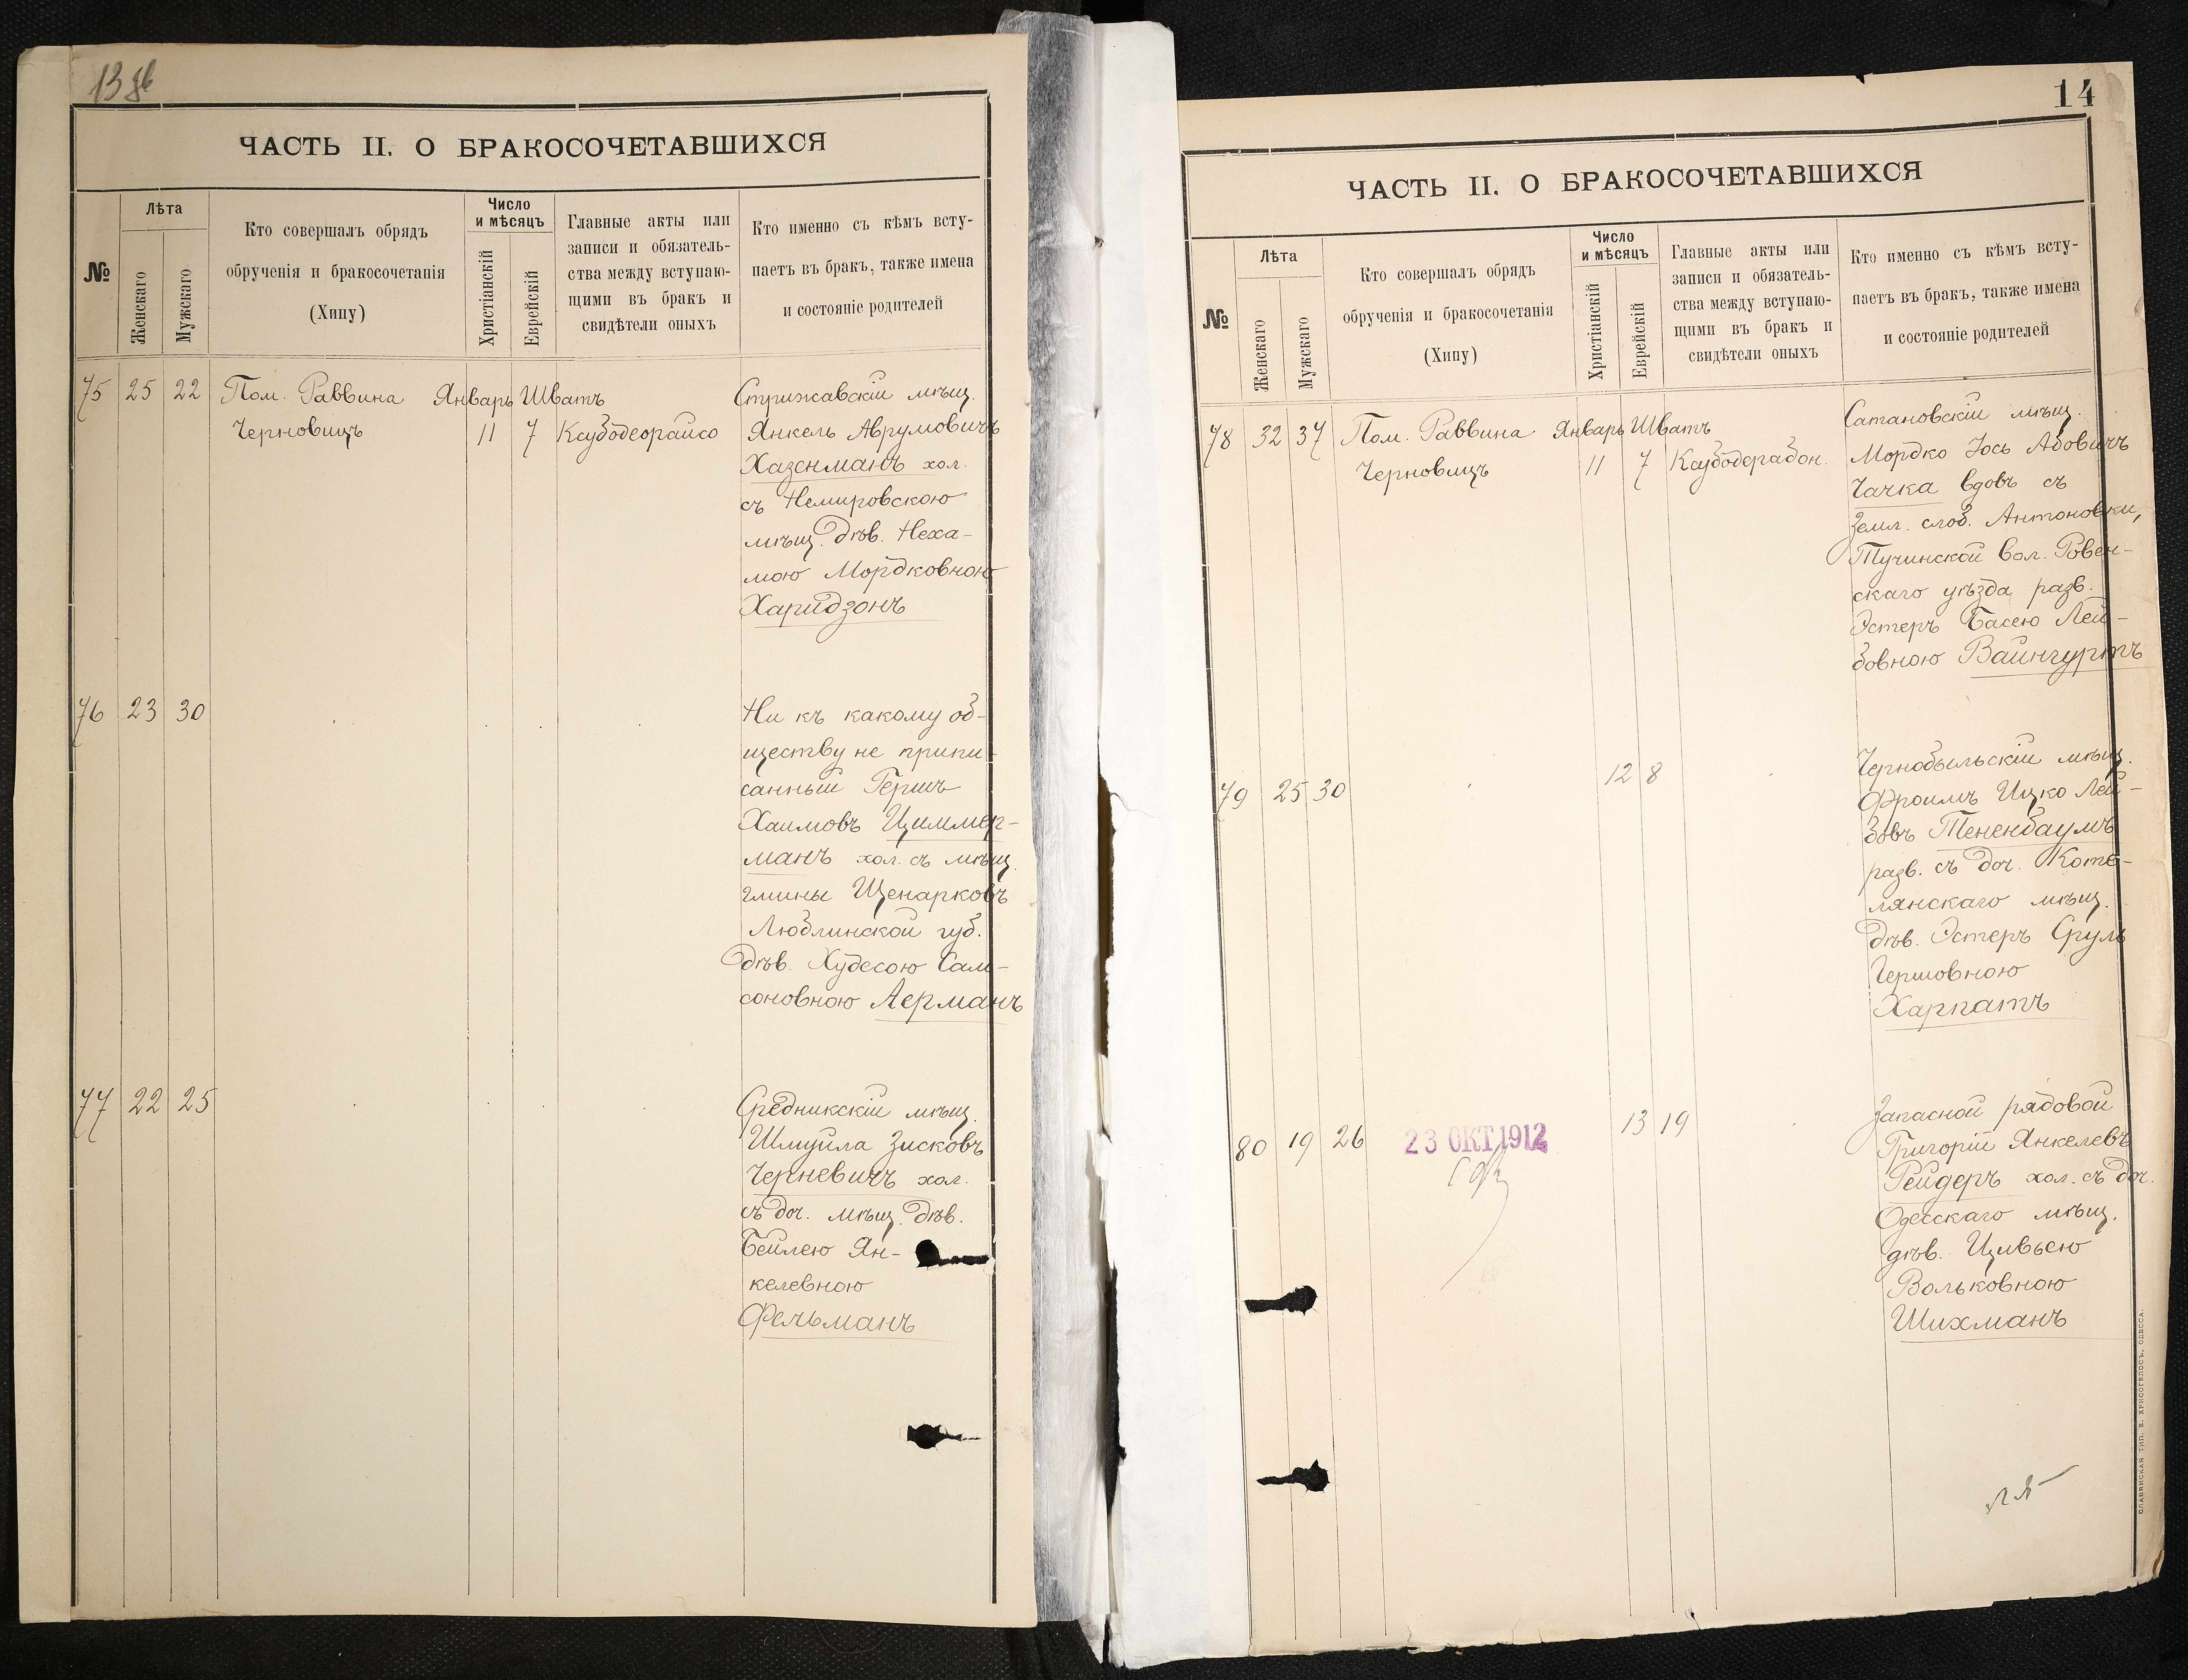 13 об
ЧАСТЬ II. О БРАКОСОЧЕТАВШИХСЯ
№
Лѣта
Женскаго
Мужскаго
Кто совершалъ обрядъ
обрученія и бракосочетанія
(Хипу)
Число
и мѣсяцъ
Христіанскій
Еврейскій
Главные акты или
записи и обязатель-
ства между вступаю-
щими въ бракъ и
свидѣтели оныхъ
Кто именно съ кѣмъ всту-
паетъ въ бракъ, также имена
и состояніе родителей
75 25 22 Пом. Раввина Январь Шватъ
Черновицъ 11 7
Стрижавскій мѣщ.
Янкель Аврумовичъ
Хазенманъ хол.
съ Немировскою
мѣщ. дѣв. Неха-
мою Мордковною
Харидзонъ
76 23 30
Ни къ какому об-
ществу не припи-
санный Гершъ
Хаимовъ Циммер-
манъ хол. съ мѣщ.
гмины Щенарковъ
Люблинской губ.
дѣв. Худесою Сам-
соновною Лерманъ
77 22 25
Средникскій мѣщ.
Шмуйла Зисковъ
Черневичъ хол.
съ доч. мѣщ. дѣв.
Бейлею Ян-
келевною
Фельманъ
14
ЧАСТЬ II. О БРАКОСОЧЕТАВШИХСЯ
№
Лѣта
Женскаго
Мужскаго
Кто совершалъ обрядъ
обрученія и бракосочетанія
(Хипу)
Число
и мѣсяцъ
Христіанскій
Еврейскій
Главные акты или
записи и обязатель-
ства между вступаю-
щими въ бракъ и
свидѣтели оныхъ
Кто именно съ кѣмъ всту-
паетъ въ бракъ, также имена
и состояніе родителей
78 32 37 Пом. Раввина Январь Шватъ
Черновицъ 11 7
Сатановскій мѣщ.
Мордко Іось Абовичъ
Чачка вдовъ съ
земл. слоб. Антоновки,
Тучинской вол. Ровен-
скаго уѣзда разв.
Эстеръ Басею Лей-
бовною Вайнгуртъ
79 25 30 12 8
Чернобыльскій мѣщ.
Фроимъ Ицко Лей-
бовъ Тененбаумъ
разв. съ доч. Коте-
лянскаго мѣщ.
дѣв. Эстеръ Сруль
Гершовною
Харпатъ
80 19 26 23 ОКТ 1912 13 19
Запасной рядовой
Григорій Янкелевъ
Рейдеръ хол. съ доч.
Одесскаго мѣщ.
дѣв. Цивьею
Вольковною
Шихманъ
СЛАВЯНСКАЯ ТИП. Е. ХРИСОГЕЛОСЪ, ОДЕССА.